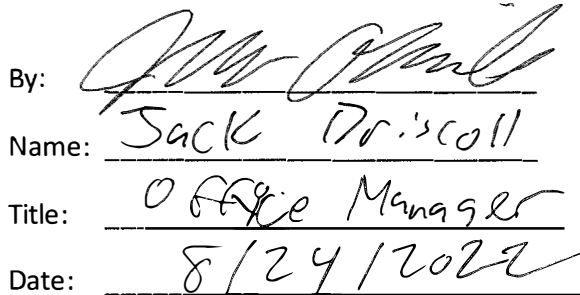 By:
Name: Jack Driscoll
Title: Office Manager
Date: 8/24/2022